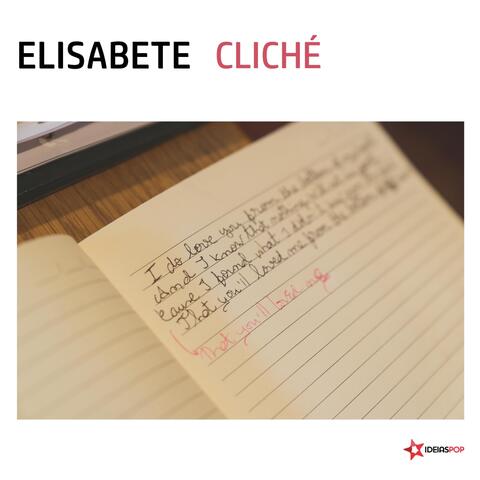 ELISABETE CLICHÉ
I do love you from the bottom of my
And I know that nothing
'cause I found what I didn't
That you'll loved me from the bottom
That you'll loved me
IDEIASPOP